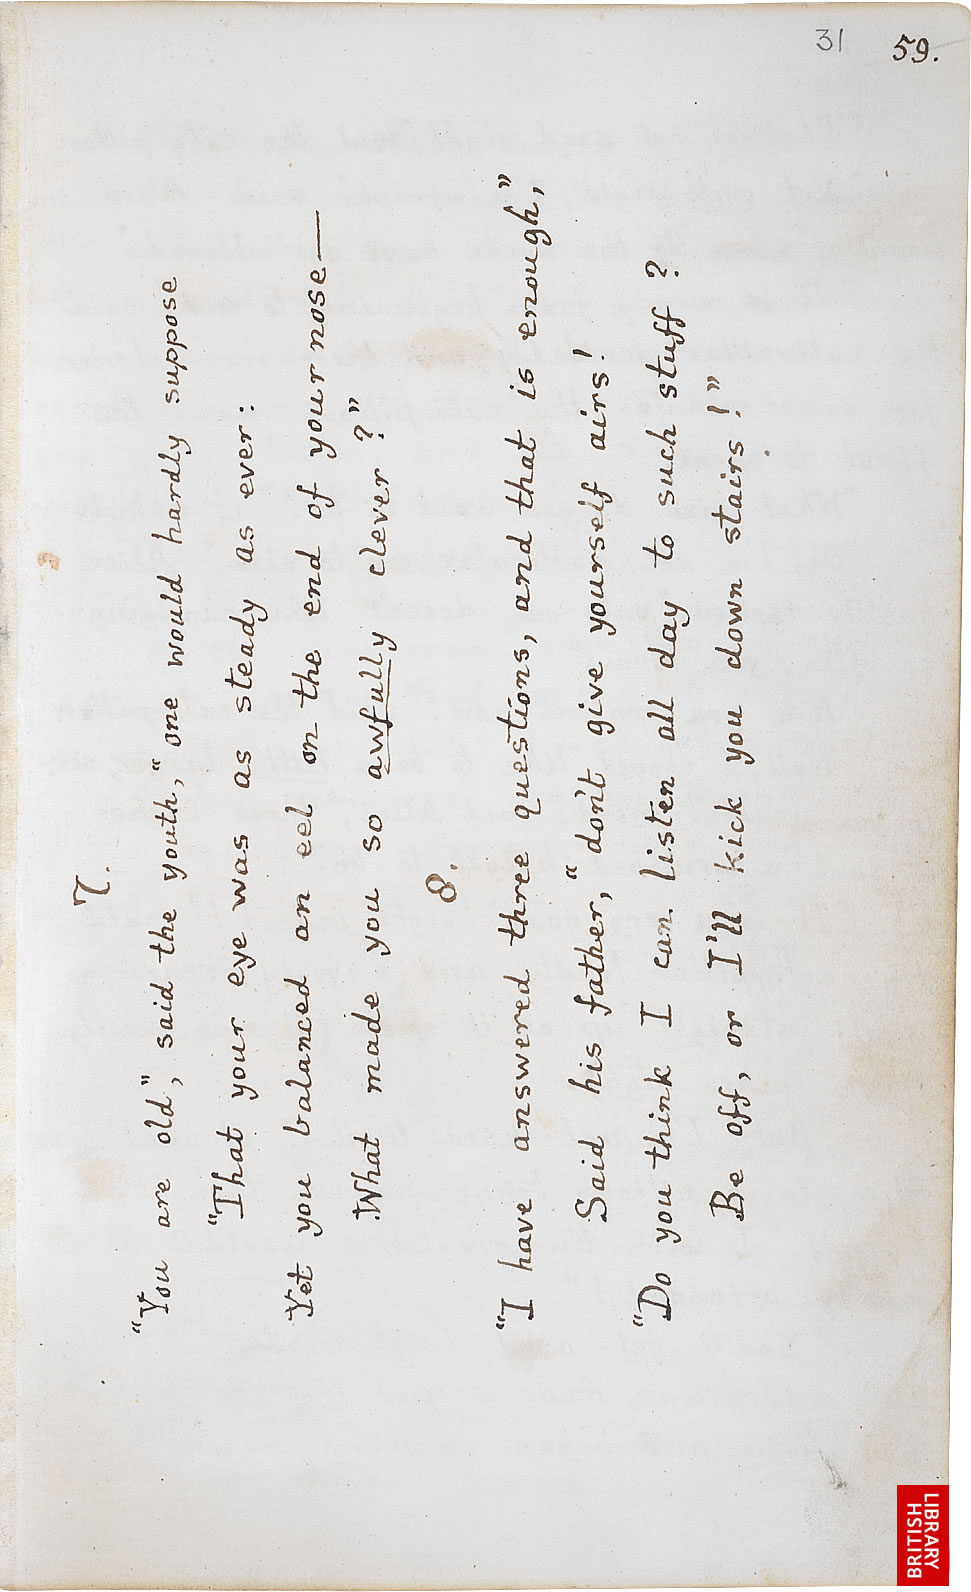 31 59.
7.
"You are old," said the youth, "one would hardly suppose
"That your eye was as steady as ever:
Yet you balanced an eel on the end of your nose—
What made you so awfully clever?"
8.
"I have answered three questions, and that is enough,"
Said his father, "don't give yourself airs!
"Do you think I can listen all day to such stuff?
Be off, or I'll kick you down stairs!"
BRITISH
LIBRARY